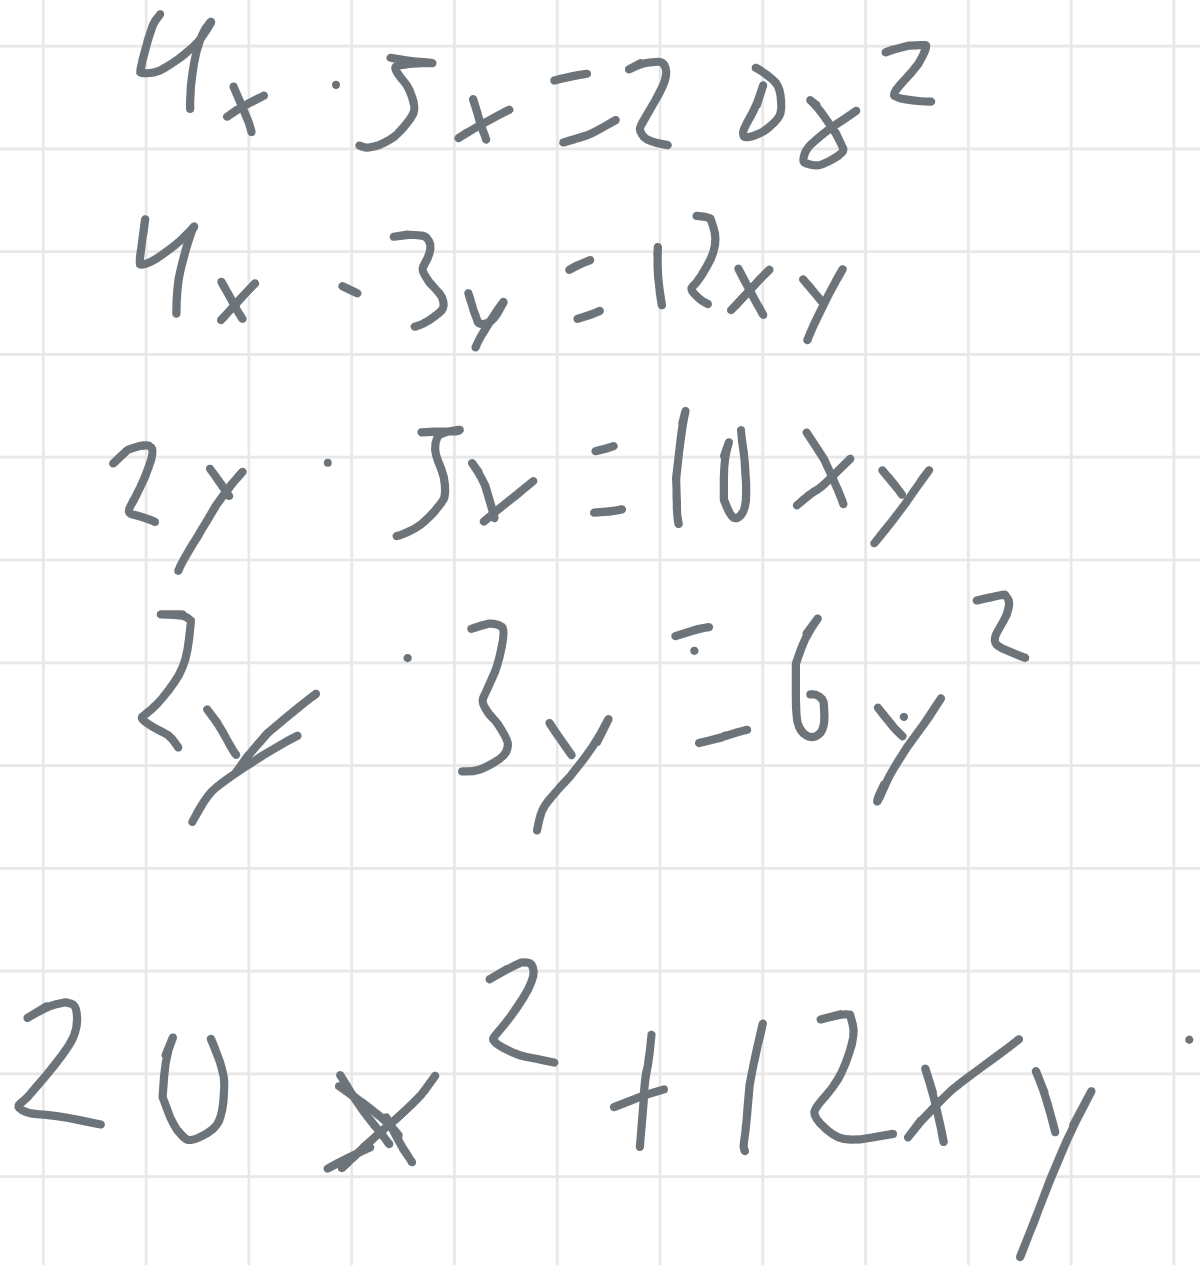 4x · 5x = 20x²
4x · 3y = 12xy
2y · 5x = 10xy
2y · 3y = 6y²
20x² + 12xy